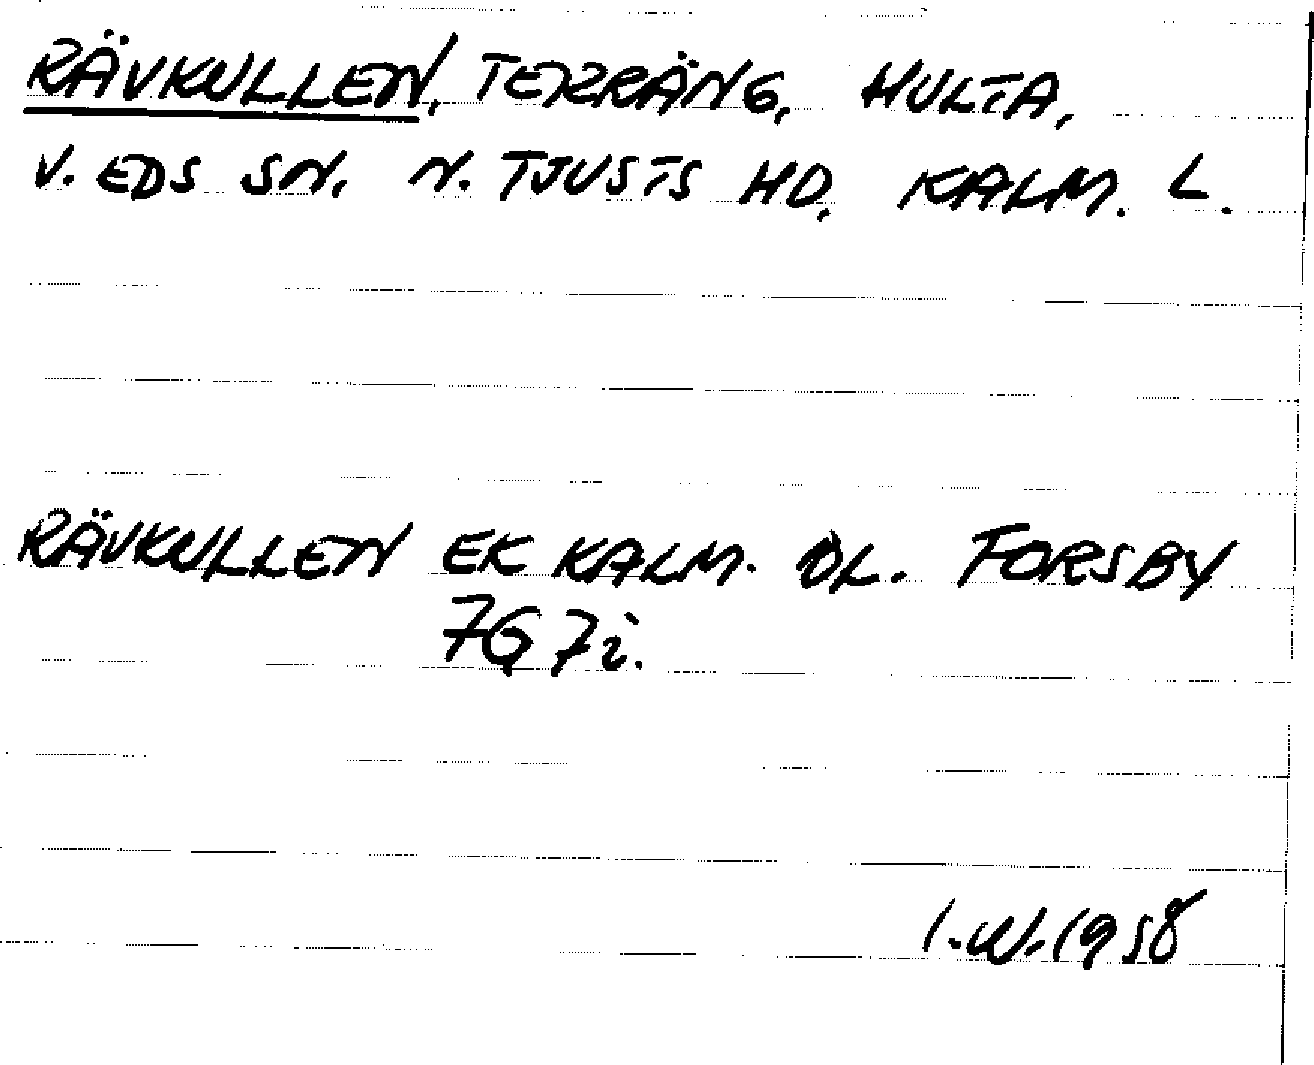 RÄVKULLEN, TERRÄNG, HULTA,
V. EDS SN. N. TJUSTS HD. KALM. L.
RÄVKULLEN EK KALM. DL. FORSBY
7G 7i.
I.W. 1958